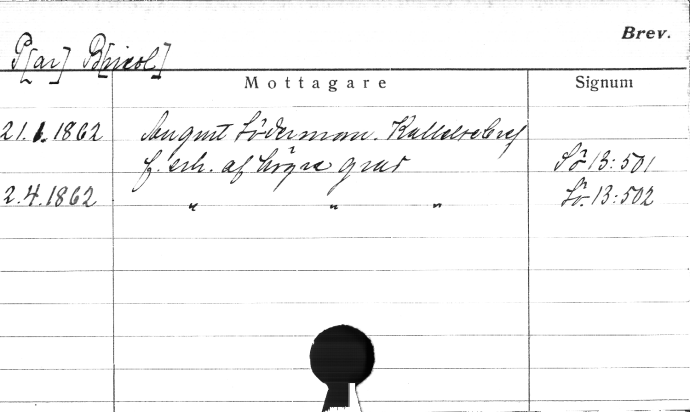 Brev.
P[ar] B[ricol]
Mottagare Signum
21.1.1862 August Söderman. Kallelsebref
f. erh. af högre grad Sö 13:501
2.4.1862 " " " Sö. 13:502